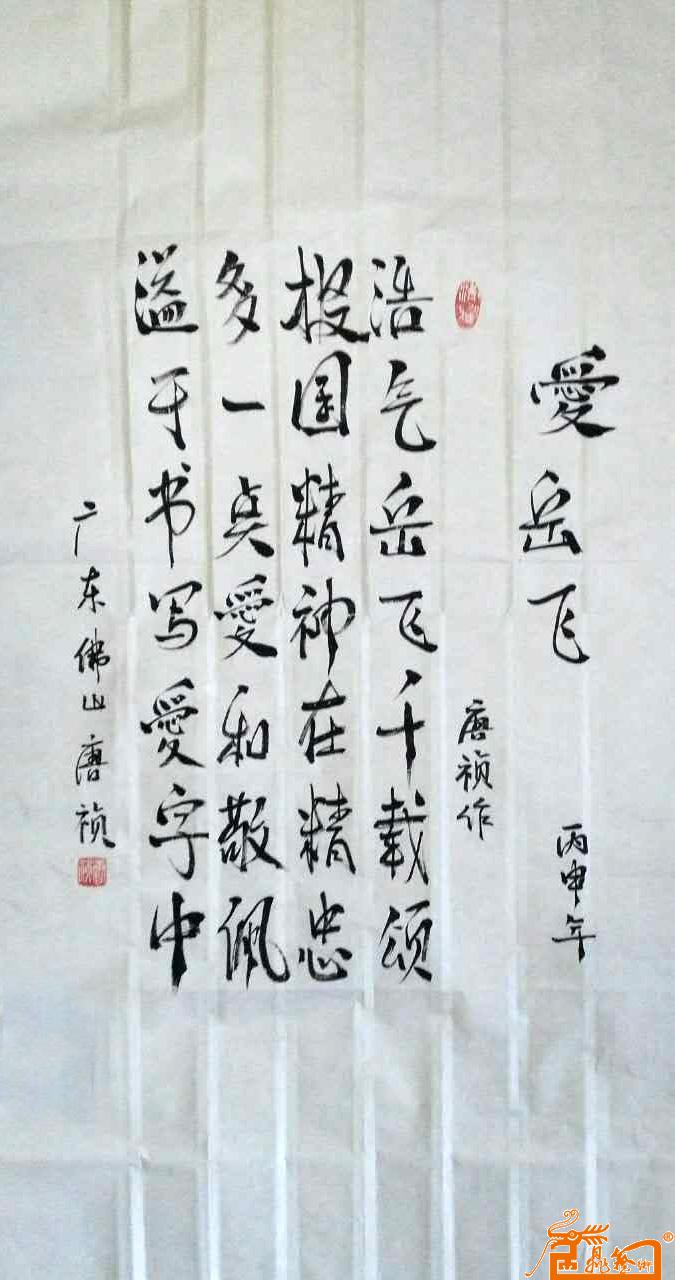 愛岳飞
丙申年
唐祯作
浩气岳飞千载颂
报国精神在精忠
多一点愛和敬佩
溢于书写愛字中
广东佛山唐祯